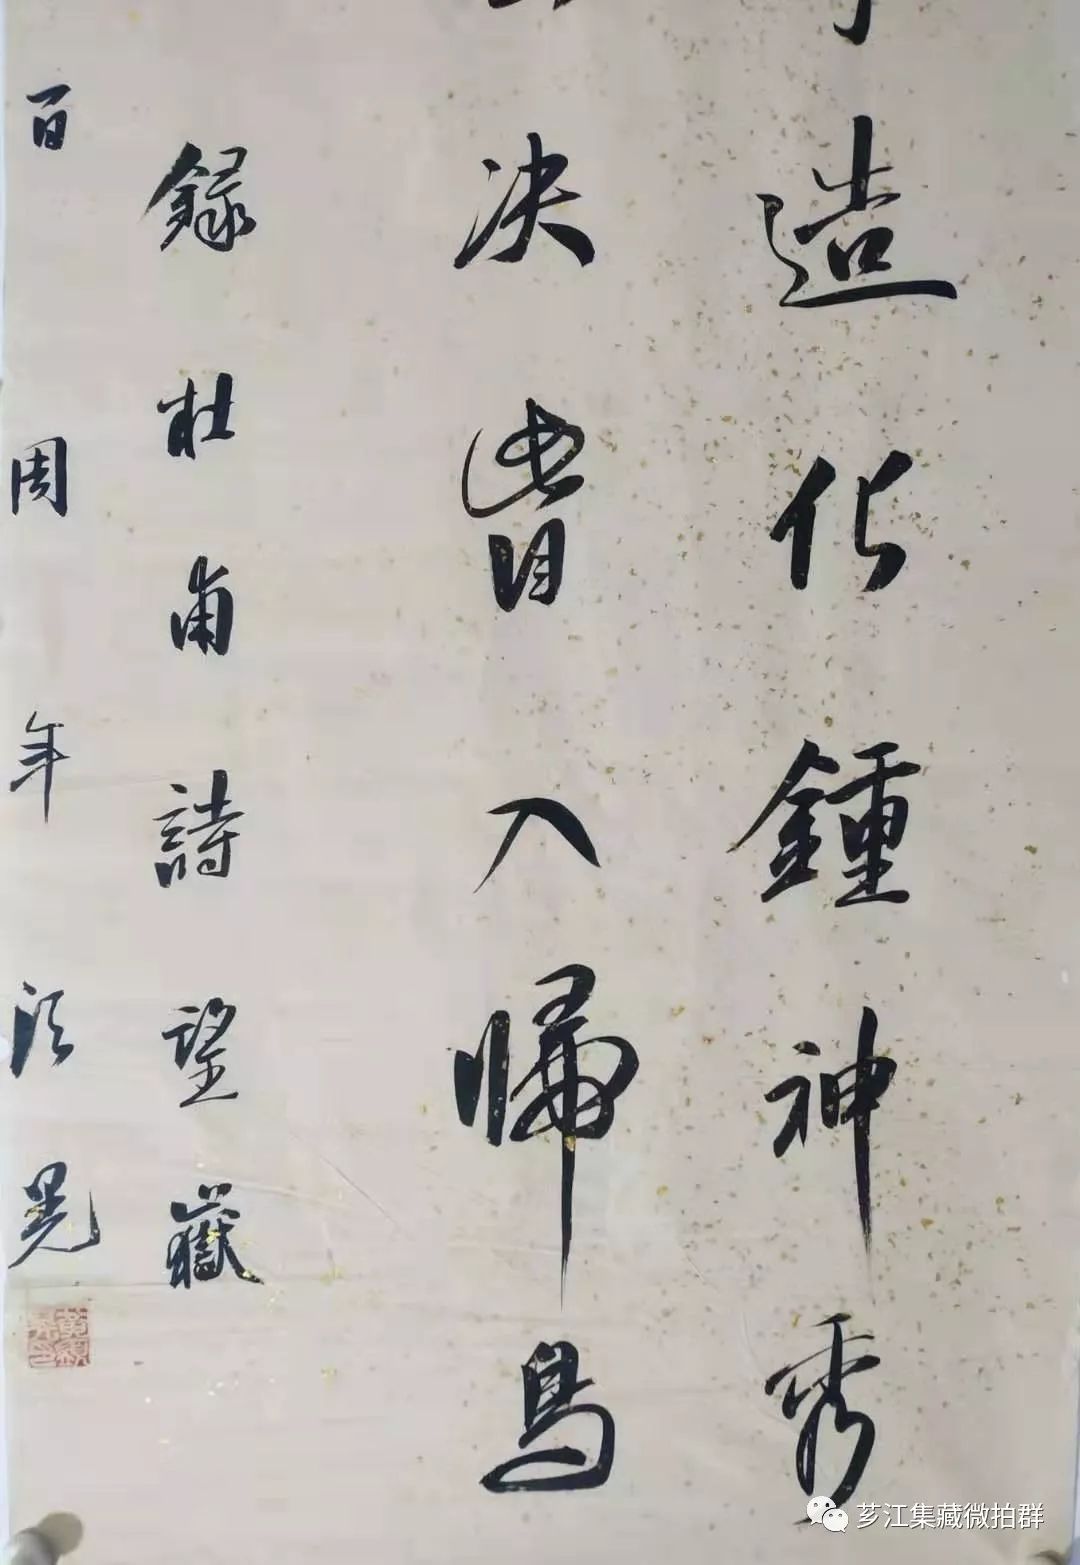 造化鍾神秀
决眥入歸鳥
錄杜甫詩望嶽
百周年 晃
芗江集藏微拍群